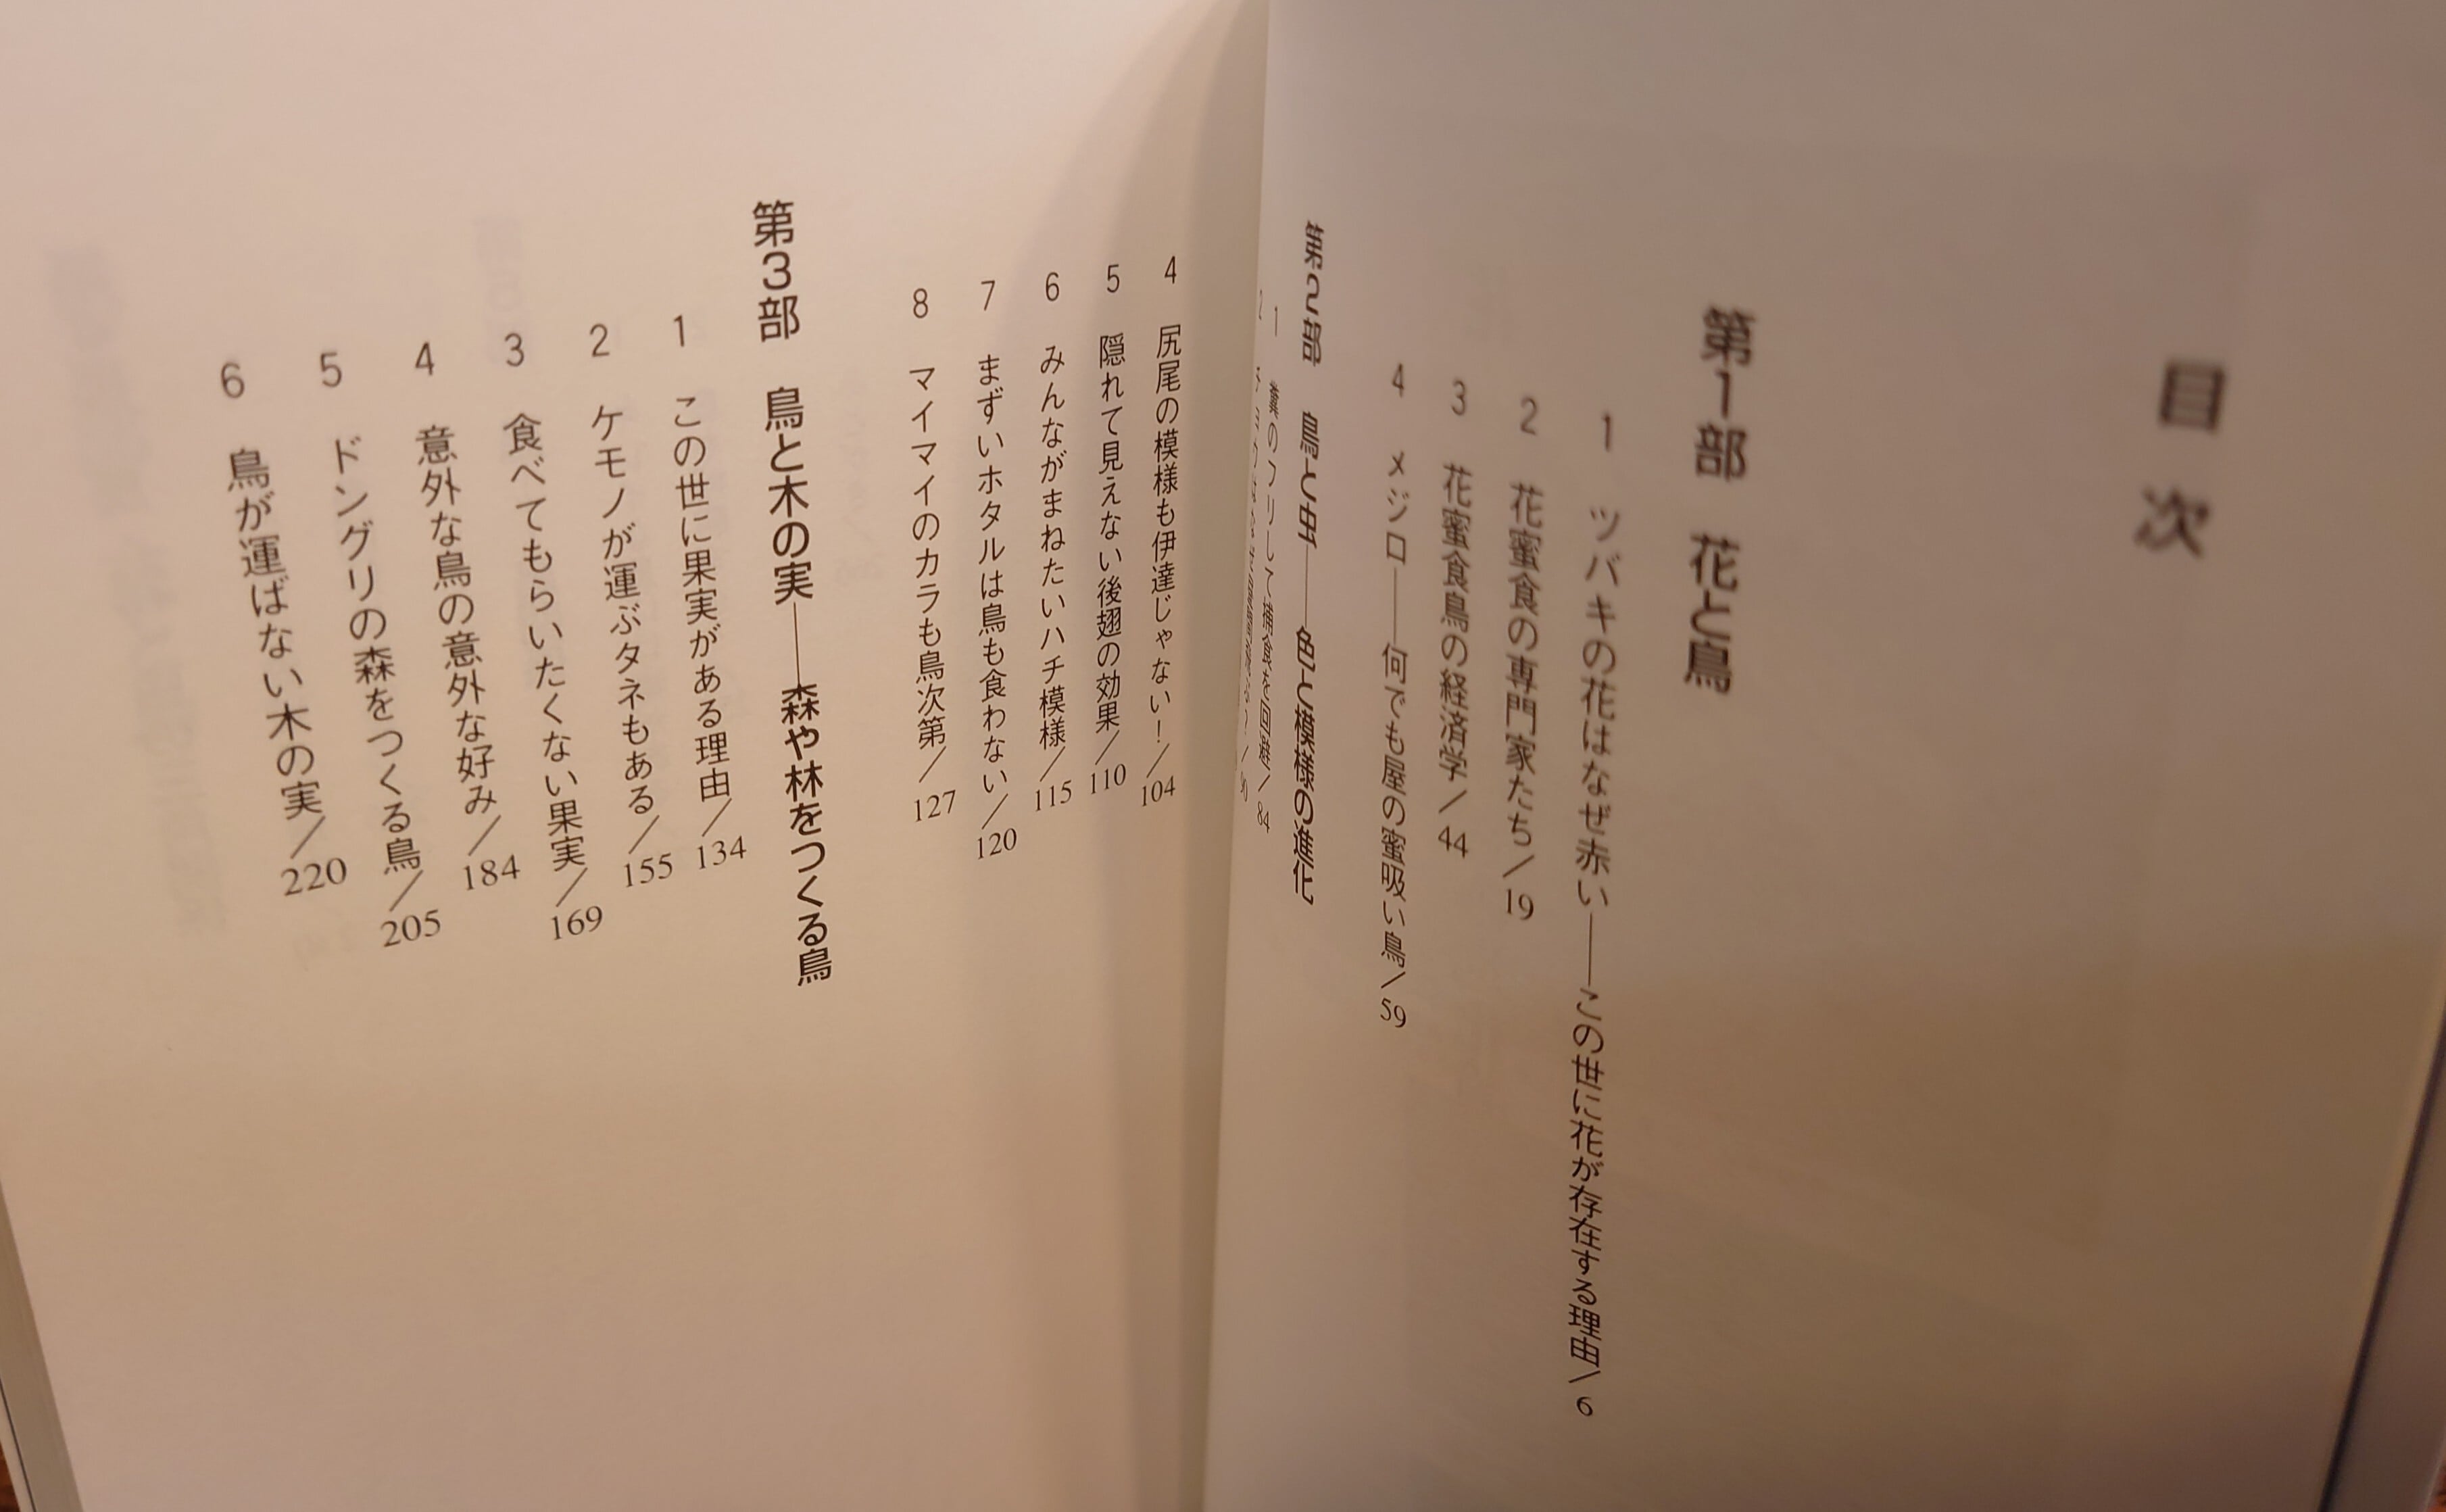 目次
第1部 花と鳥
1 ツバキの花はなぜ赤い――この世に花が存在する理由/6
2 花蜜食の専門家たち/19
3 花蜜食鳥の経済学/44
4 メジロ――何でも屋の蜜吸い鳥/59
第2部 鳥と虫――色と模様の進化
1 糞のフリして捕食を回避/84
2 /90
4 尻尾の模様も伊達じゃない!/104
5 隠れて見えない後翅の効果/110
6 みんながまねたいハチ模様/115
7 まずいホタルは鳥も食わない/120
8 マイマイのカラも鳥次第/127
第3部 鳥と木の実――森や林をつくる鳥
1 この世に果実がある理由/134
2 ケモノが運ぶタネもある/155
3 食べてもらいたくない果実/169
4 意外な鳥の意外な好み/184
5 ドングリの森をつくる鳥/205
6 鳥が運ばない木の実/220